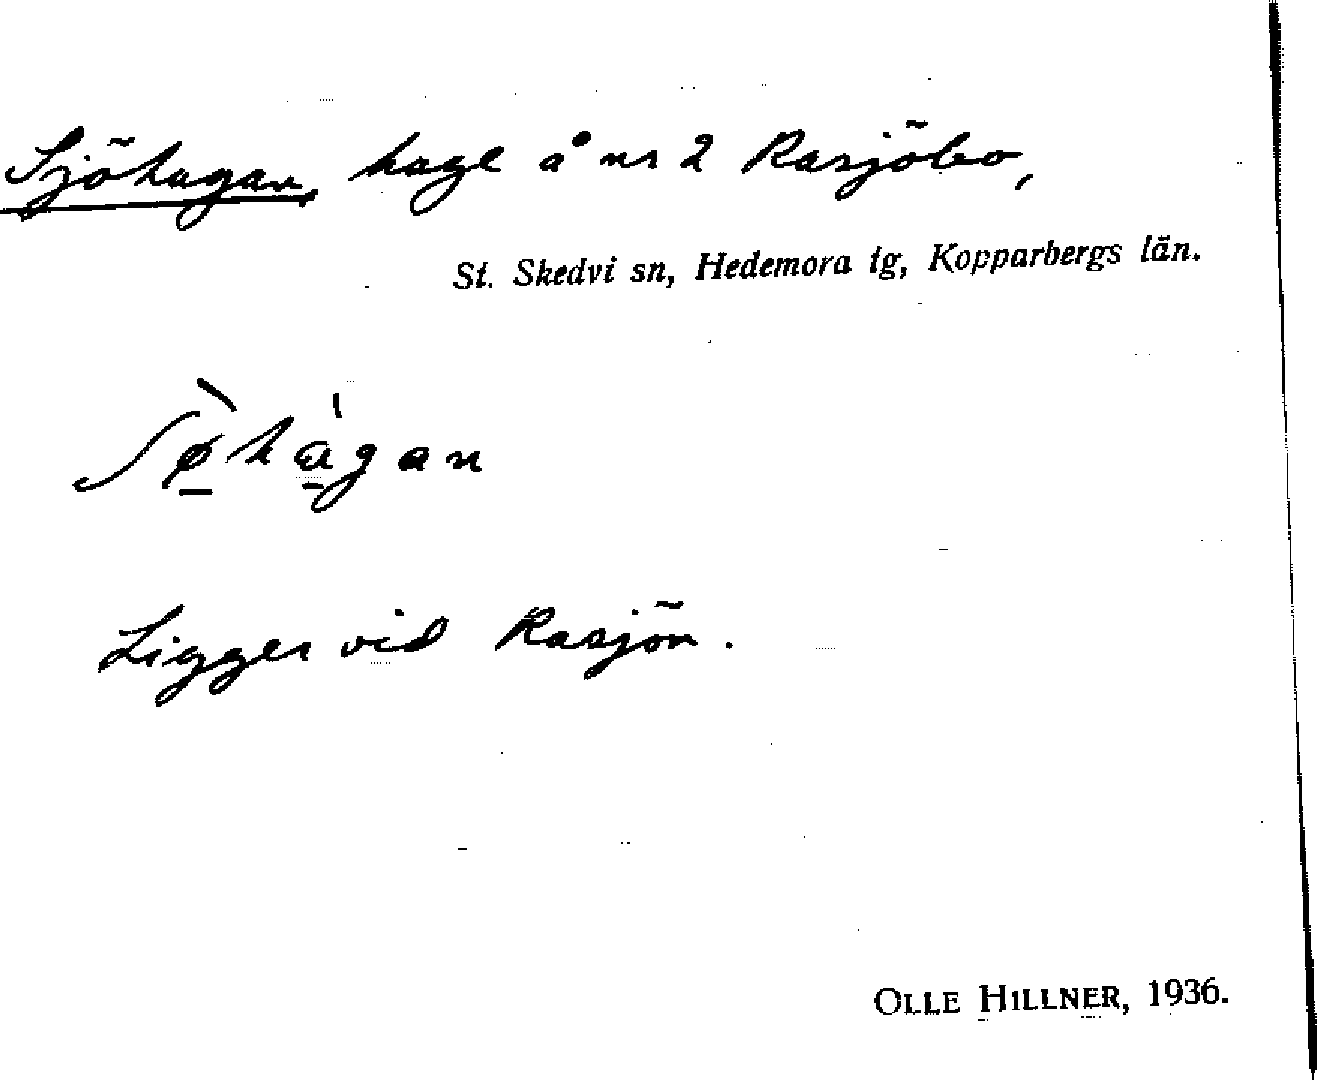 Sjöhagan, hage å nr 2 Rasjöbo,
St. Skedvi sn, Hedemora tg, Kopparbergs län.
ʃø̀hàgan
Ligger vid Rasjön.
OLLE HILLNER, 1936.